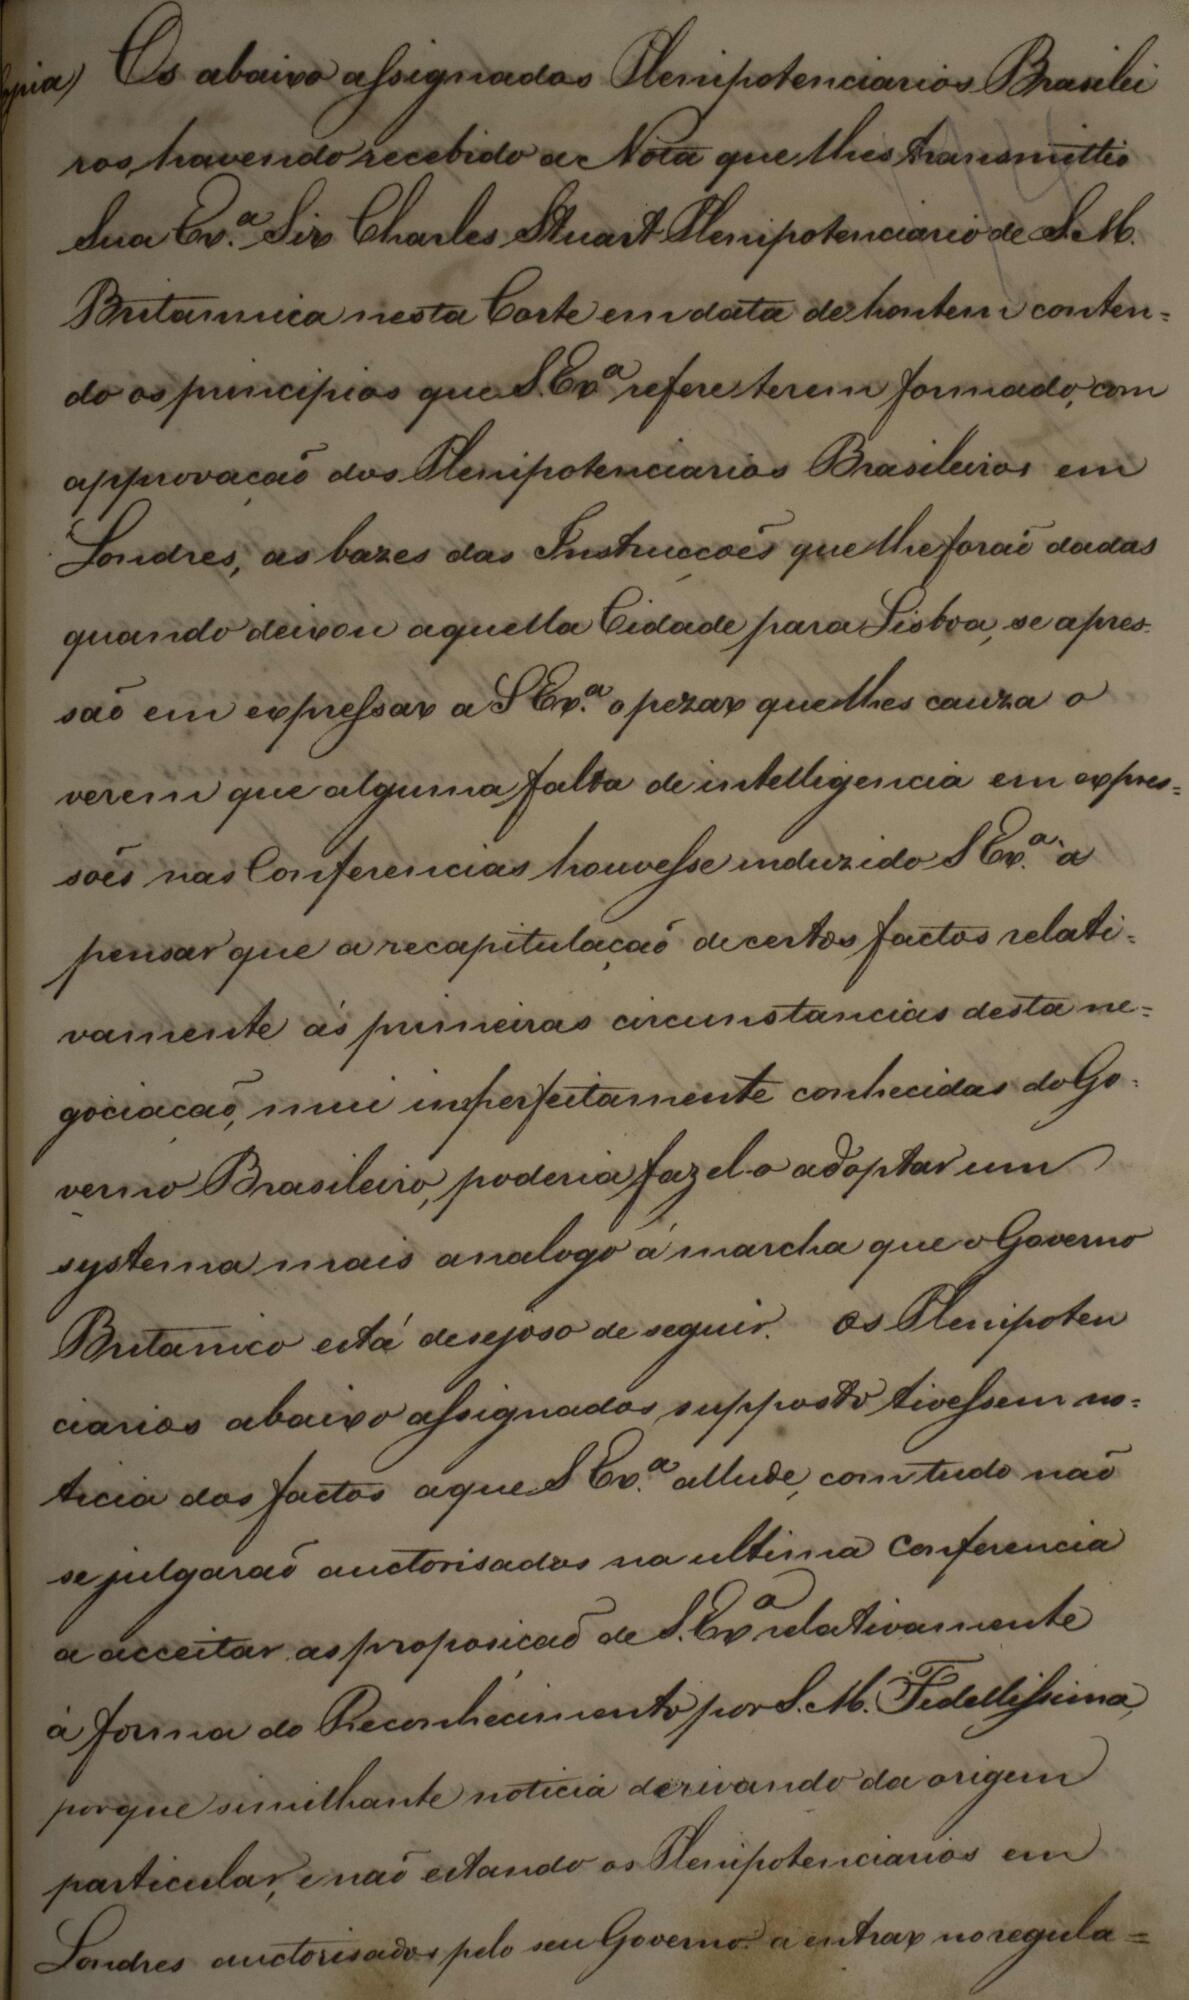 Os abaixo assignados Plenipotenciarios Brasilei
ros, havendo recebido a Nota que lhes transmittio
Sua Ex.ª Sir Charles Stuart Plenipotenciario de S. M.
Britannica nesta Corte em data de hontem conten=
do os principios que S. Ex.ª refere terem formado, com
approvação dos Plenipotenciarios Brasileiros em
Londres, as bazes das Instrucções que lhe forão dadas
quando deixou aquella Cidade para Lisboa, se apres-
são em expressar a S Ex.ª o pezar que lhes cauza o
verem que alguma falta de intelligencia em expres=
sões nas Conferencias houvesse induzido S Ex.ª a
pensar que a recapitulação de certos factos relati=
vamente ás primeiras circunstancias desta ne=
gociação, mui imperfeitamente conhecidas do Go=
verno Brasileiro, poderia fazel-o adoptar um
systema mais analogo á marcha que o Governo
Britanico está desejoso de seguir. Os Plenipoten
ciarios abaixo assignados, supposto tivessem no=
ticia dos factos a que S Ex.ª allude, com tudo não
se julgarão auctorisados na ultima Conferencia
a acceitar as proposicão de S. Exª relativamente
á forma do Reconhecimento por S. M. Fidellissima,
porque similhante noticia derivando da origem
particular, e não estando os Plenipotenciarios em
Londres auctorisados pelo seu Governo a entrar no regula=